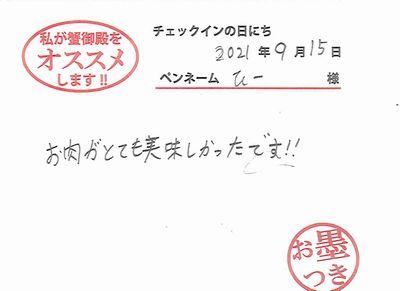 私が蟹御殿を
オススメ
します!!
チェックインの日にち
2021年9月15日
ペンネーム ひー 様
お肉がとても美味しかったです!!
お墨
つき